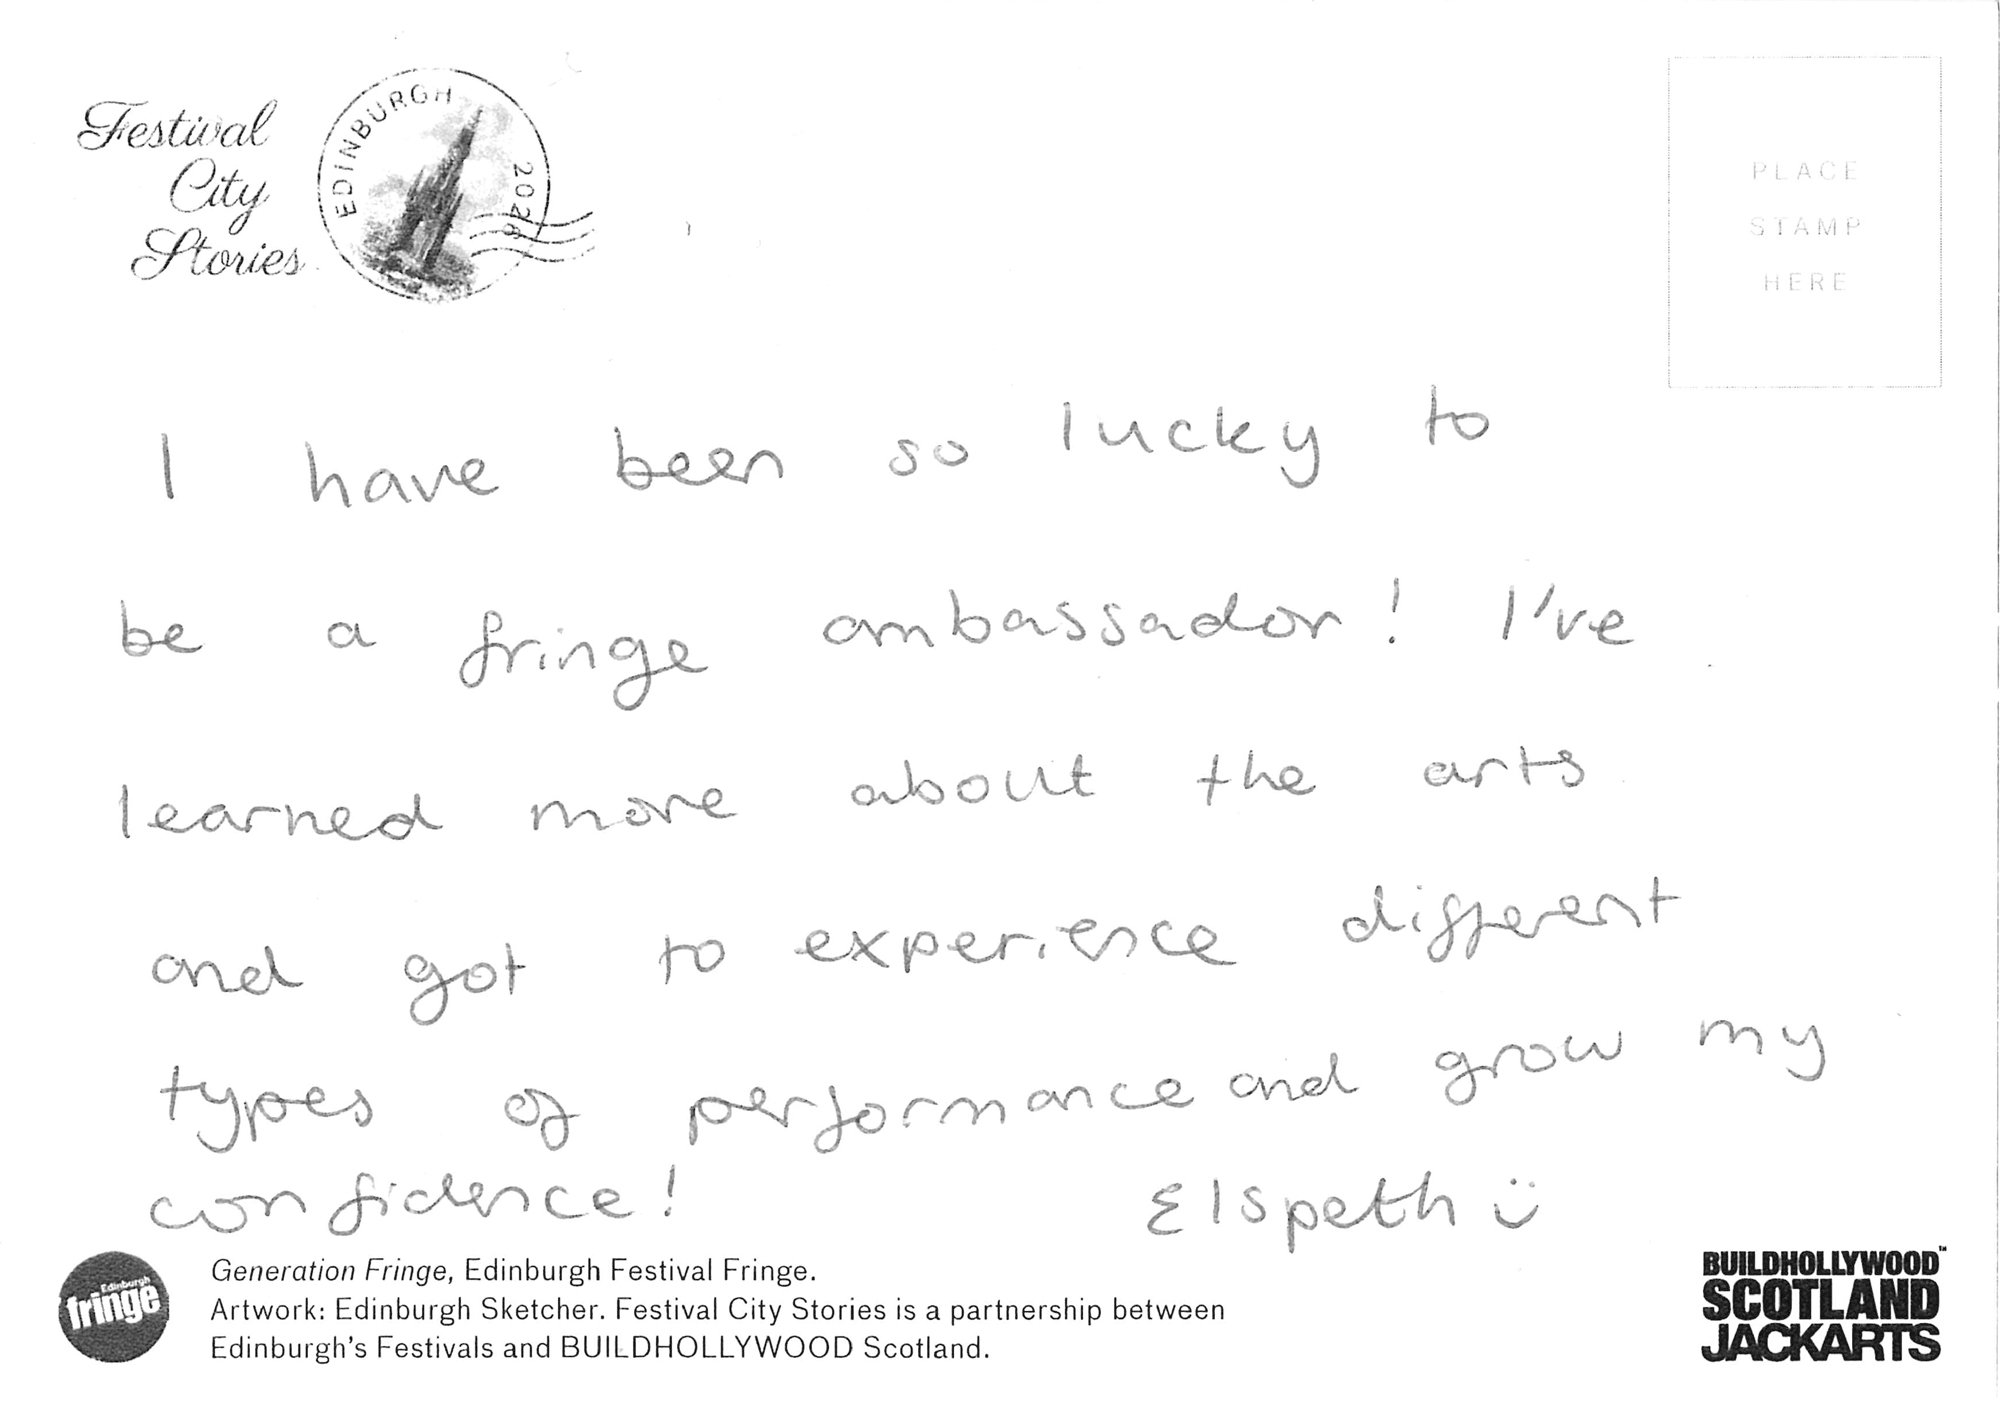 Festival
City
Stories
EDINBURGH
2026
PLACE
STAMP
HERE
I have been so lucky to
be a fringe ambassador! I've
learned more about the arts
and got to experience different
types of performance and grow my
confidence!
Elspeth ü
Edinburgh
fringe
Generation Fringe, Edinburgh Festival Fringe.
Artwork: Edinburgh Sketcher. Festival City Stories is a partnership between
Edinburgh's Festivals and BUILDHOLLYWOOD Scotland.
BUILDHOLLYWOOD™
SCOTLAND
JACKARTS